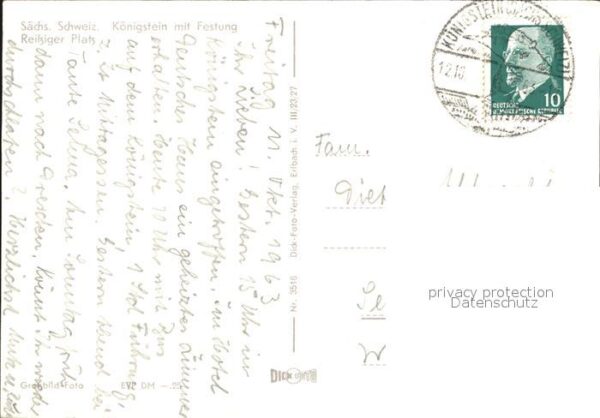 Sächs. Schweiz. Königstein mit Festung
Reißiger Platz
Freitag 11. Okt. 1963
Ihr Lieben! Gestern 15 Uhr in
Königstein eingetroffen, im Hotel
Deutsches Haus ein geheiztes Zimmer
erhalten. Heute 10 Uhr mit Bus
auf den Königstein, 1 Std Führung,
Mittagessen. Gestern Abend bei
Tante Selma, Sonntag früh
dann nach Dresden, Könnt Ihr wieder
Herzlichst
Nr. 3516 Dick-Foto-Verlag, Erlbach i. V. III/23/27
Großbild-Foto EVP DM —.25
DICK
FOTO
KÖNIGSTEIN
12.10
DEUTSCHE
DEMOKRATISCHE REPUBLIK
10
Fam.
Diet
privacy protection
Datenschutz